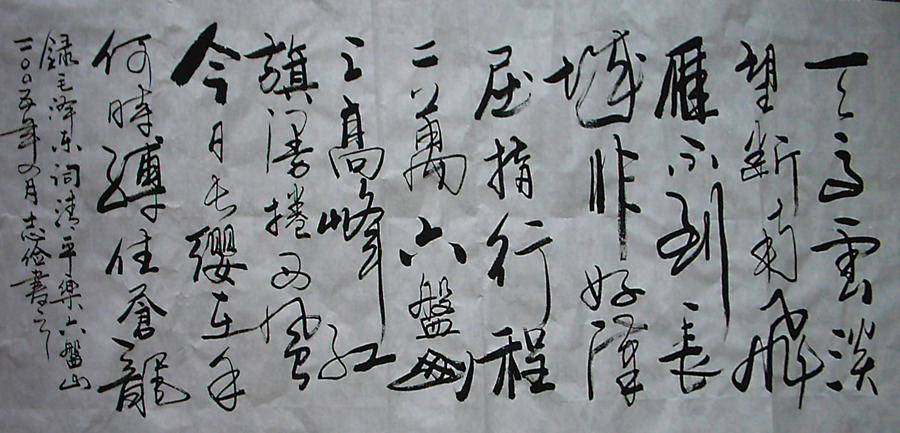 天高雲淡
望斷南飛
雁不到長
城非好漢
屈指行程
二萬六盤山
上高峰紅
旗漫捲西風
今日長纓在手
何時縛住蒼龍
錄毛澤东词清平樂六盤山
二〇〇五年四月志俭書